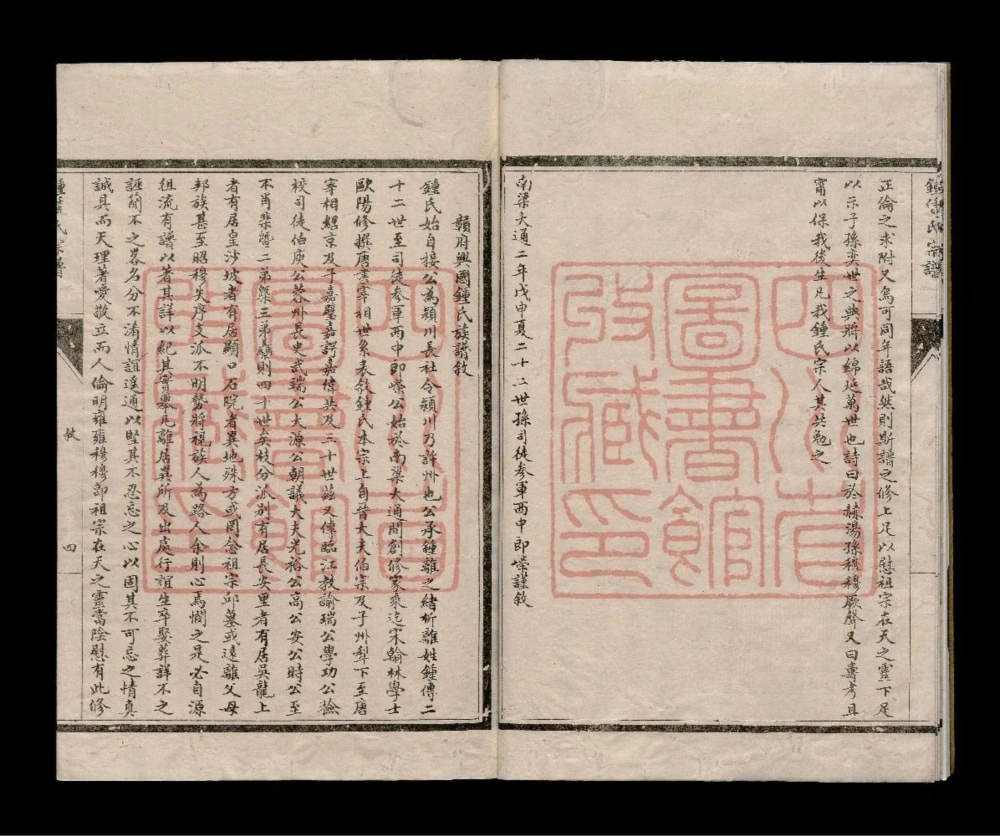 鍾氏宗譜
正倫之求附又烏可同年語哉然則斯譜之修上足以慰祖宗在天之靈下足
以示子孫奕世之典將以綿延萬世也詩曰於赫湯孫穆穆厥聲又曰壽考且
甯以保我後生凡我鍾氏宗人其共勉之
南梁大通二年戊申夏二十二世孫司徒參軍西中郎嶸謹敘
贛府興國鍾氏族譜敘
鍾氏始自接公為潁川長社令潁川乃許州也公承鍾離之緒析離姓鍾傳二
十二世至司徒參軍西中郎嶸公始於南梁大通間創修家乘迄宋翰林學士
歐陽修撰唐書宰相世系表敘鍾氏本宗上自晉大夫伯宗及子州犁下至唐
宰相紹京及子嘉璧嘉諤嘉偉共及三十世茲又傳臨江教諭瑞公學功公檢
校司徒伯庚公蓉州長史武瑞公大源公朝議大夫光裕公高公安公時公至
不肖棐暨二弟槩三弟 則四十世矣枝分派別有居長安里者有居吳龍上
者有居皇沙坡者有居顯口石院者異地殊方或罔念祖宗邱墓或遠離父母
邦族甚至昭穆失序支派不明勢將視族人為路人余則心焉憫之是必自源
徂流有譜以著其詳以紀其實舉凡離居異所及出處行誼生卒娶葬詳不之
誣簡不之畧名分不淆情誼遙通以堅其不忍忘之心以固其不可忘之情真
誠具而天理著愛敬立而人倫明雍雍穆穆即祖宗在天之靈當陰慰有此修
敘
四
四川省
圖書館
收藏印